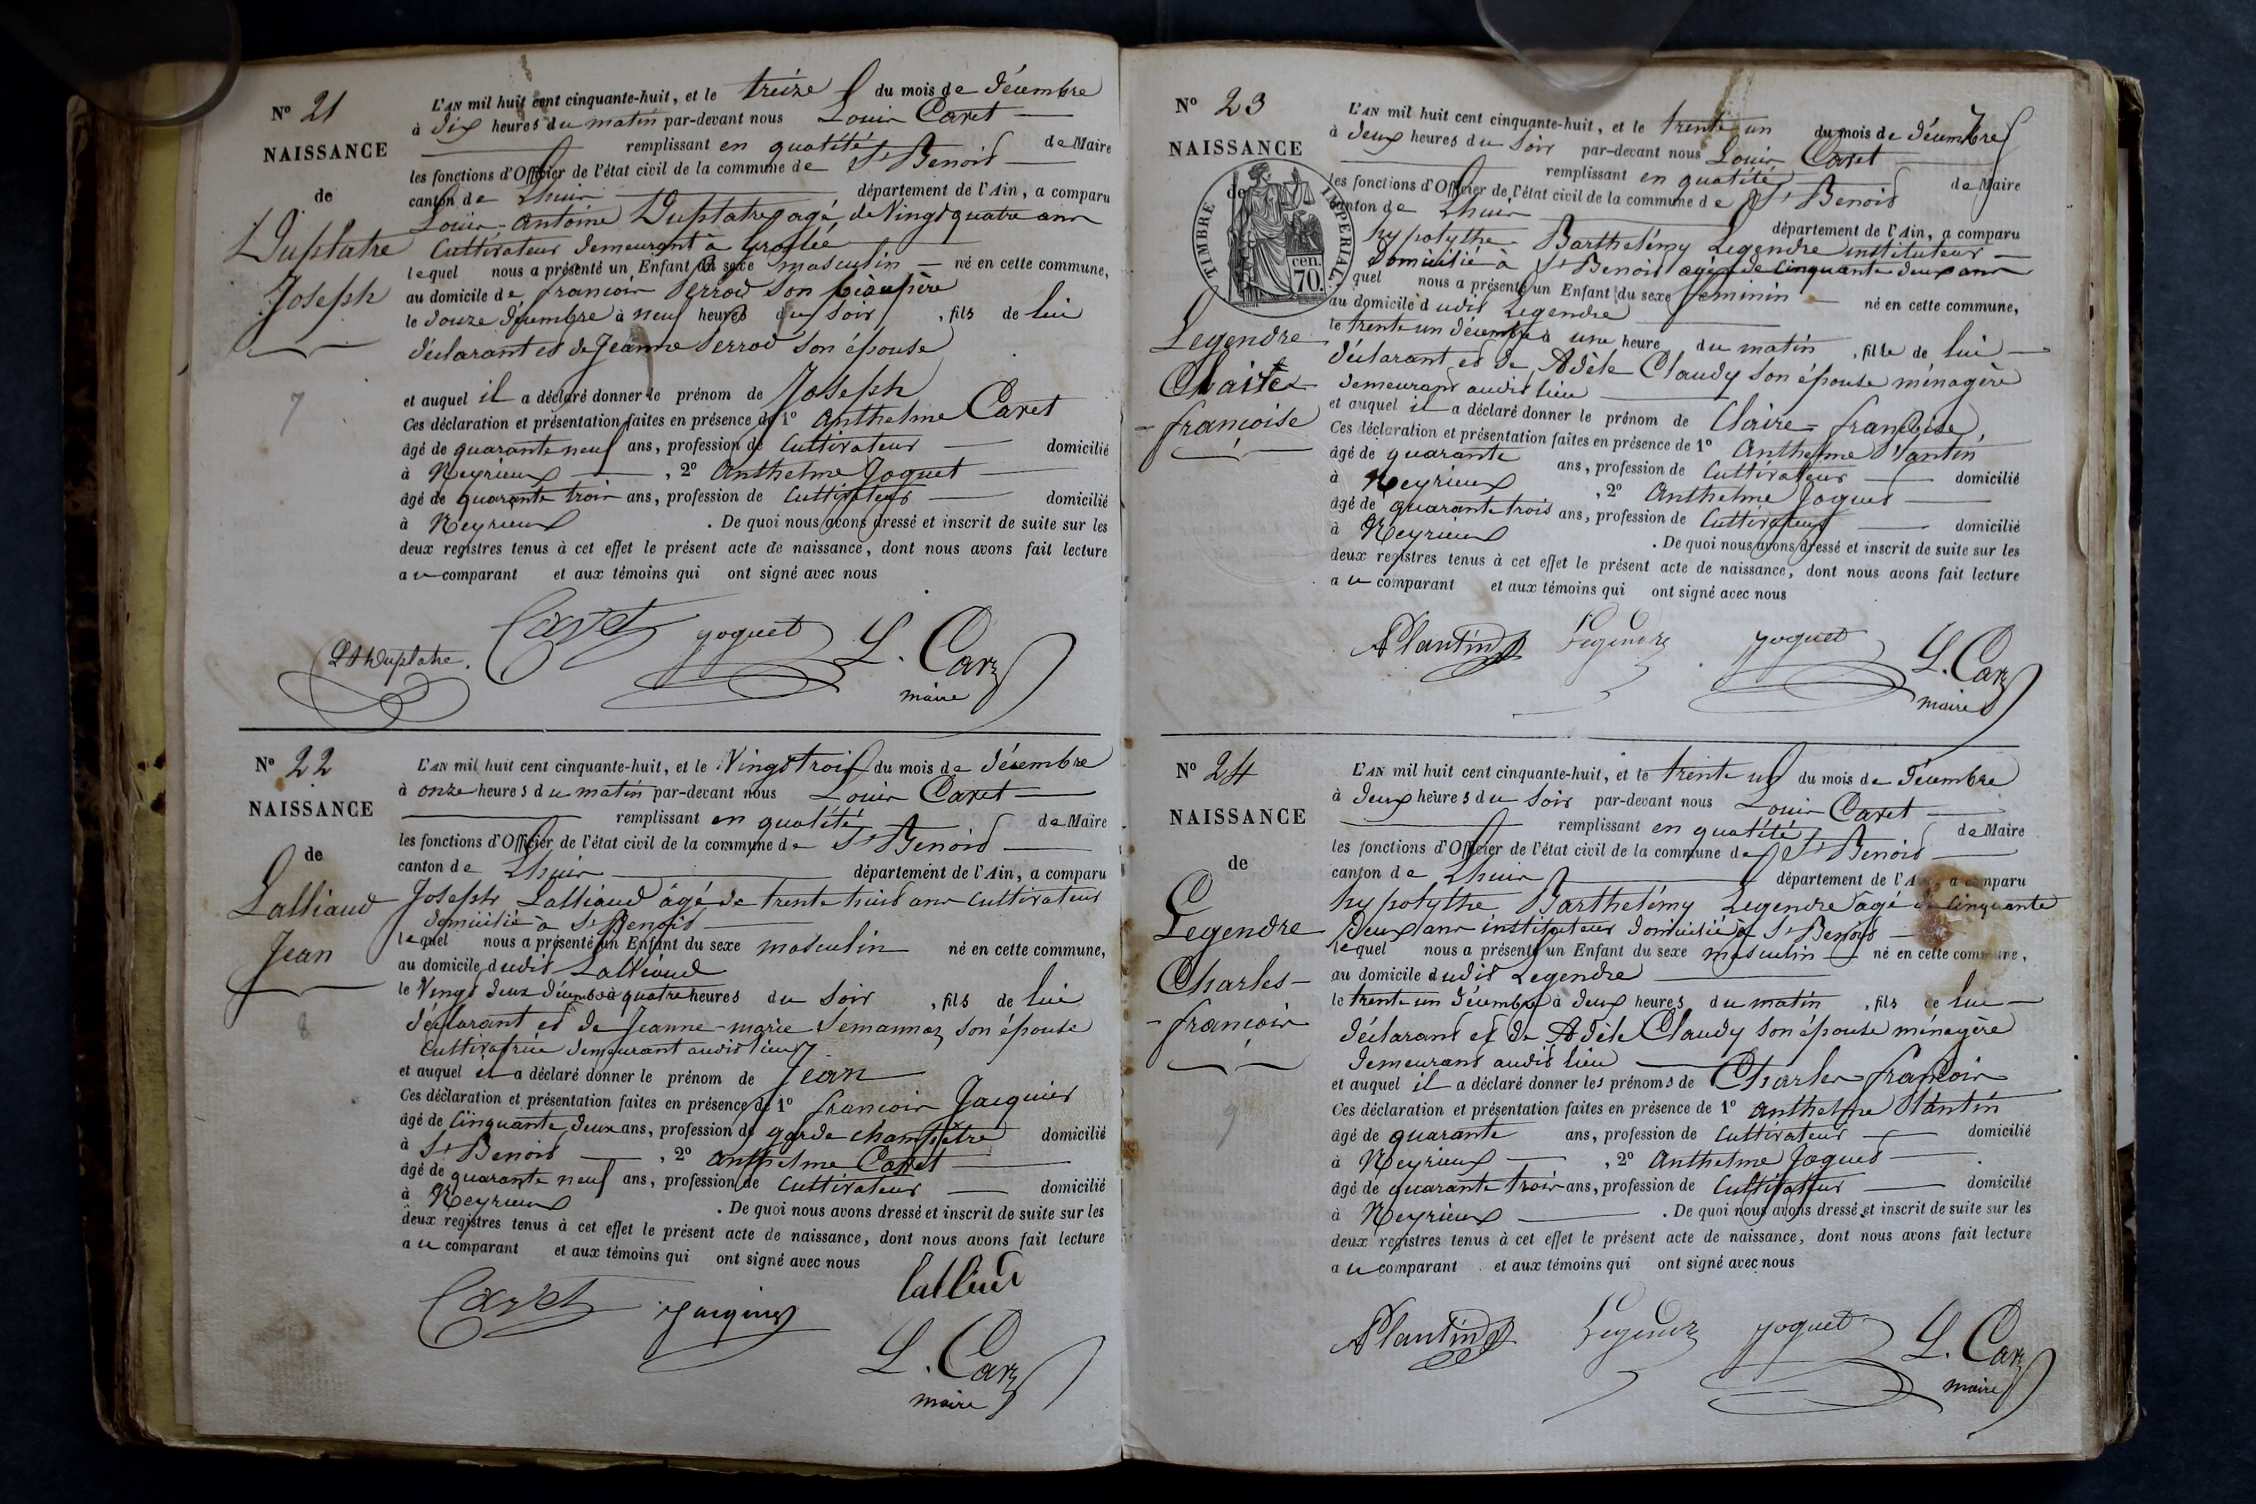 N° 21
NAISSANCE
de
Duplatre
Joseph
7
L'AN mil huit cent cinquante-huit, et le treize du mois de décembre
à dix heures du matin par-devant nous Louis Caret
remplissant en qualité de Maire
les fonctions d'Officier de l'état civil de la commune de St Benoid
canton de Lhuis département de l'Ain, a comparu
Louis-Antoine Duplatre agé de Vingt quatre ans
Cultivateur demeurant à Groslée
lequel nous a présenté un Enfant du sexe masculin né en cette commune,
au domicile de françois Perrod son beaupère
le douze décembre à neuf heures du soir, fils de lui
déclarant et de Jeanne Perrod son épouse
et auquel il a déclaré donner le prénom de Joseph
Ces déclaration et présentation faites en présence de 1° Anthelme Caret
âgé de quarante neuf ans, profession de Cultivateur domicilié
à Neyrieux, 2° Anthelme Joguet
âgé de quarante trois ans, profession de Cultivateur domicilié
à Neyrieux. De quoi nous avons dressé et inscrit de suite sur les
deux registres tenus à cet effet le présent acte de naissance, dont nous avons fait lecture
au comparant et aux témoins qui ont signé avec nous
Duplatre Caret joguet L. Caret
maire
N° 22
NAISSANCE
de
Lalliaud
Jean
8
L'AN mil huit cent cinquante-huit, et le Vingt trois du mois de décembre
à onze heures du matin par-devant nous Louis Caret
remplissant en qualité de Maire
les fonctions d'Officier de l'état civil de la commune de St Benoid
canton de Lhuis département de l'Ain, a comparu
Joseph Lalliaud âgé de trente huit ans Cultivateur
domicilié à St Benoid
lequel nous a présenté un Enfant du sexe masculin né en cette commune,
au domicile dudit Lalliaud
le Vingt deux décembre à quatre heures du soir, fils de lui
déclarant et de Jeanne-marie son épouse
Cultivatrice demeurant audit lieu
et auquel il a déclaré donner le prénom de Jean
Ces déclaration et présentation faites en présence de 1° françois Jacquier
âgé de Cinquante deux ans, profession de garde champêtre domicilié
à St Benoid, 2° Anthelme Caret
âgé de quarante neuf ans, profession de Cultivateur domicilié
à Neyrieux. De quoi nous avons dressé et inscrit de suite sur les
deux registres tenus à cet effet le présent acte de naissance, dont nous avons fait lecture
au comparant et aux témoins qui ont signé avec nous
Caret lalliud
L. Caret
maire
N° 23
NAISSANCE
de
TIMBRE IMPERIAL
70 cen.
Legendre
Claire
-françoise
L'AN mil huit cent cinquante-huit, et le trente un du mois de décembre
à deux heures du soir par-devant nous Louis Caret
remplissant en qualité de Maire
les fonctions d'Officier de l'état civil de la commune de St Benoid
canton de Lhuis département de l'Ain, a comparu
hypolythe Barthelémy Legendre instituteur
domicilié à St Benoid agé de Cinquante deux ans
quel nous a présenté un Enfant du sexe féminin né en cette commune,
au domicile dudit Legendre
le trente un décembre à une heure du matin, fille de lui
déclarant et de Adèle Claudy son épouse ménagère
demeurant audit lieu
et auquel il a déclaré donner le prénom de Claire-françoise
Ces déclaration et présentation faites en présence de 1° Anthelme Plantin
âgé de quarante ans, profession de Cultivateur domicilié
à Neyrieux, 2° Anthelme Joguet
âgé de quarante trois ans, profession de Cultivateur domicilié
à Neyrieux. De quoi nous avons dressé et inscrit de suite sur les
deux registres tenus à cet effet le présent acte de naissance, dont nous avons fait lecture
au comparant et aux témoins qui ont signé avec nous
APlantin Legendre joguet L. Caret
maire
N° 24
NAISSANCE
de
Legendre
Charles-
-françois
9
L'AN mil huit cent cinquante-huit, et le trente un du mois de décembre
à deux heures du soir par-devant nous Louis Caret
remplissant en qualité de Maire
les fonctions d'Officier de l'état civil de la commune de St Benoid
canton de Lhuis département de l'Ain, a comparu
hypolythe Barthelémy Legendre agé de Cinquante
deux ans instituteur domicilié à St Benoid
lequel nous a présenté un Enfant du sexe masculin né en cette commune,
au domicile dudit Legendre
le trente un décembre à deux heures du matin, fils de lui
déclarant et de Adèle Claudy son épouse ménagère
demeurant audit lieu
et auquel il a déclaré donner les prénoms de Charles françois
Ces déclaration et présentation faites en présence de 1° Anthelme Plantin
âgé de quarante ans, profession de Cultivateur domicilié
à Neyrieux, 2° Anthelme Joguet
âgé de quarante trois ans, profession de Cultivateur domicilié
à Neyrieux. De quoi nous avons dressé et inscrit de suite sur les
deux registres tenus à cet effet le présent acte de naissance, dont nous avons fait lecture
au comparant et aux témoins qui ont signé avec nous
APlantin Legendre joguet L. Caret
maire